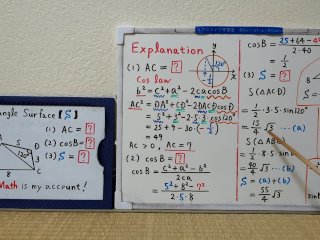 angle Surface [S]
(1) AC = ?
(2) cosB = ?
(3) S = ?
5
120°
3
8
Math is my account!
Explanation
(1) AC = ?
Cos law
b² = c² + a² - 2cacosB
AC² = DA² + CD² - 2DACDcosD
= 5² + 3² - 2·5·3·cos120°
= 25 + 9 - 30·(-½)
= 49
AC > 0, AC = 7
(2) cosB = ?
cosB = c² + a² - b² / 2ca
= 5² + 8² - 7² / 2·5·8
y
x
120°
cosB = 25 + 64 - 49
2·40
(3) S = ?
S(△ACD)
= ½·3·5·sin120°
= 15/4 √3 ... (a)
S(△ABC)
= ½·8·5·sin
= 40/4 √3 ... (b)
S = (a) + (b)
= 55/4 √3